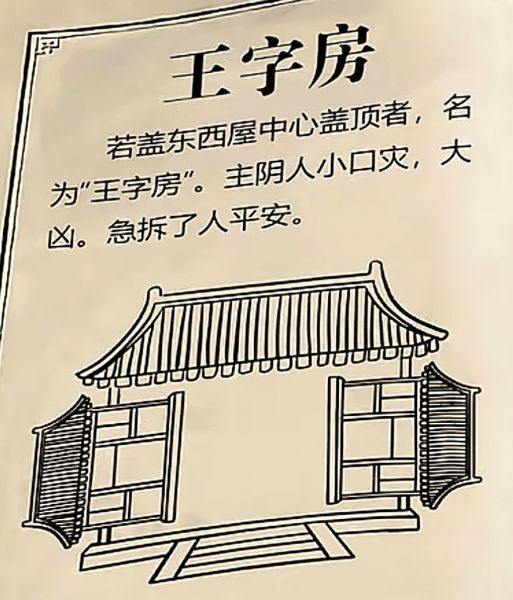 王字房
若盖东西屋中心盖顶者，名
为“王字房”。主阴人小口灾，大
凶。急拆了人平安。